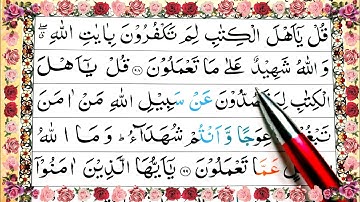 قُلْ يٰۤاَهْلَ الْكِتٰبِ لِمَ تَكْفُرُوْنَ بِاٰيٰتِ اللّٰهِ ۖۗ
وَاللّٰهُ شَهِيْدٌ عَلٰى مَا تَعْمَلُوْنَ ﴿۹۸﴾ قُلْ يٰۤاَهْلَ
الْكِتٰبِ لِمَ تَصُدُّوْنَ عَنْ سَبِيْلِ اللّٰهِ مَنْ اٰمَنَ
تَبْغُوْ عِوَجًا وَّاَنْتُمْ شُهَدَآءُ ؕ وَمَا اللّٰهُ
عَمَّا تَعْمَلُوْنَ ﴿۹۹﴾ يٰۤاَيُّهَا الَّذِيْنَ اٰمَنُوْۤا